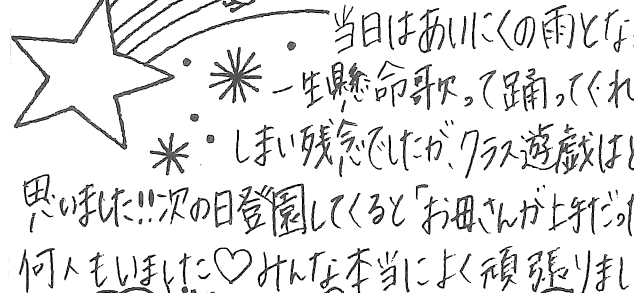 当日はあいにくの雨とな
一生懸命歌って踊ってくれ
しまい残念でしたが、クラス遊戯はと
思いました!!次の日登園してくると「お母さんが上手だった
何人もいました♡みんな本当によく頑張りまし